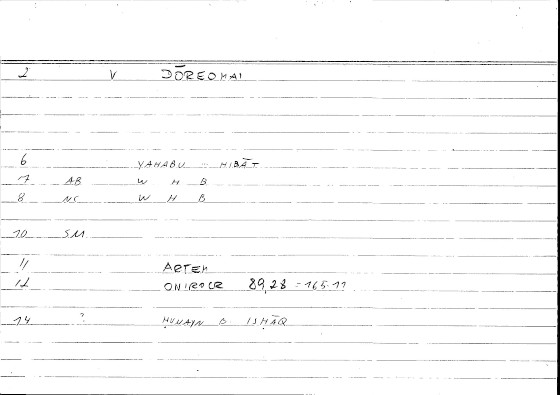 2 V DŌREOMAI
6 YAHABU - HIBĀT
7 AB W H B
8 NC W H B
10 SM
11 ARTEM
12 ONIROCR 89,28 = 165.11
14 ? ḤUNAYN B. ISḤĀQ